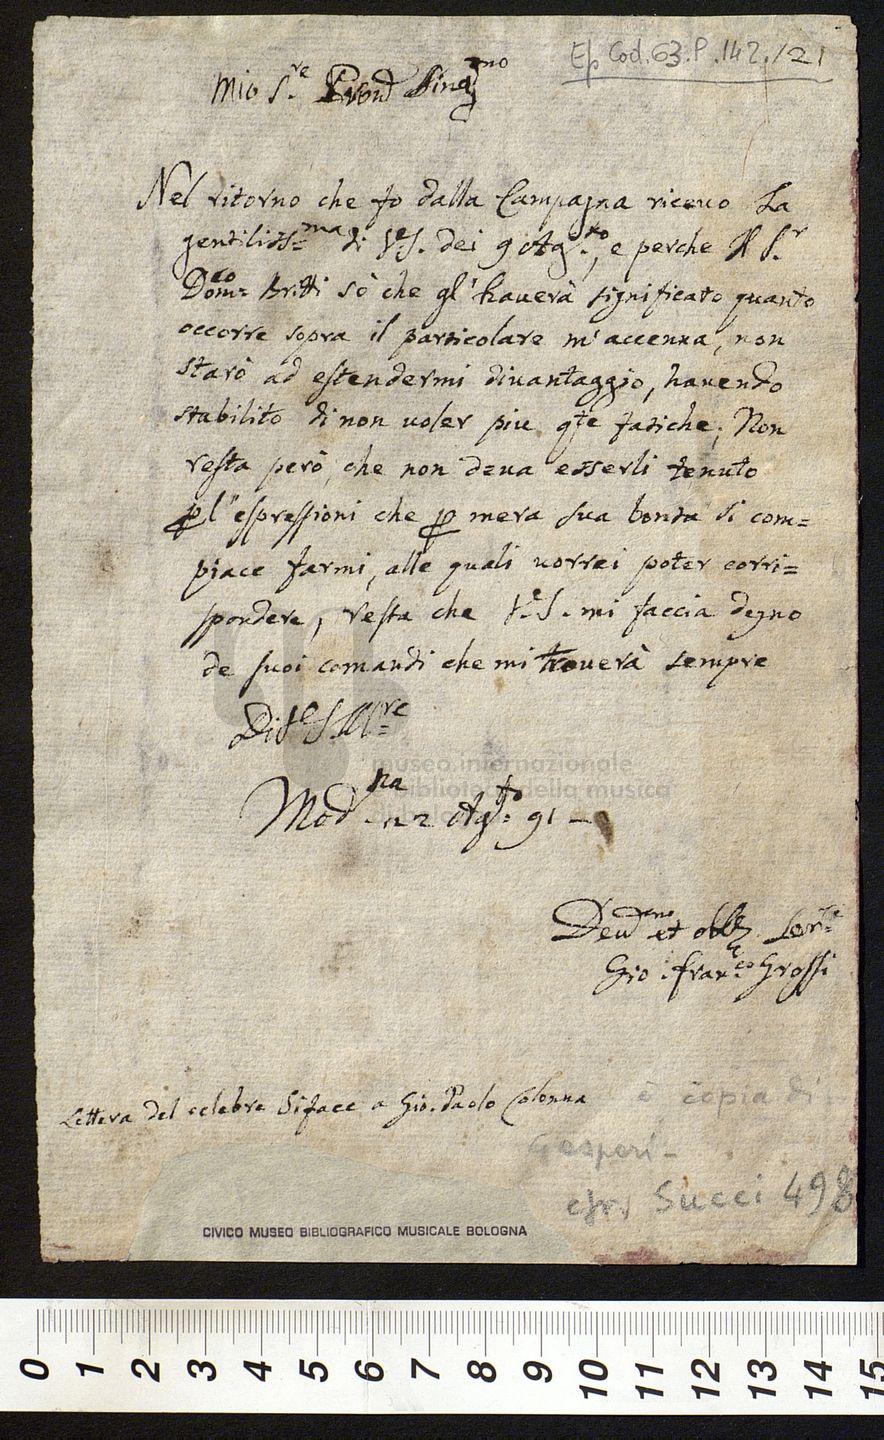 Ep. Cod. 63. P. 142. /21
Mio S.re Pron Sing.mo
Nel ritorno che fo dalla Campagna riceuo La
gentiliss.ma di V.S. dei 9 Ag.to, e perche Il S.r
Dom.co Britti sò che gl'hauerà significato quanto
occorre sopra il particolare m'accenna, non
starò ad estendermi diuantaggio, hauendo
stabilito di non uoler piu q.te fatiche; Non
resta però, che non deua esserli tenuto
p l'espressioni che p mera sua bontà si com=
piace farmi, alle quali uorrei poter corri=
spondere, resta che V.S. mi faccia degno
de suoi comandi che mi trouerà sempre
Di V.S. Ill.re
Mod.na 22 Ag.to 91 -
Deu.mo et obb. Ser.re
Gio. Fran.co Grossi
Lettera del celebre Siface a Gio. Paolo Colonna
è copia di
Gasperi -
cfr. Succi 498
museo internazionale
e biblioteca della musica
di bologna
CIVICO MUSEO BIBLIOGRAFICO MUSICALE BOLOGNA
0 1 2 3 4 5 6 7 8 9 10 11 12 13 14 15